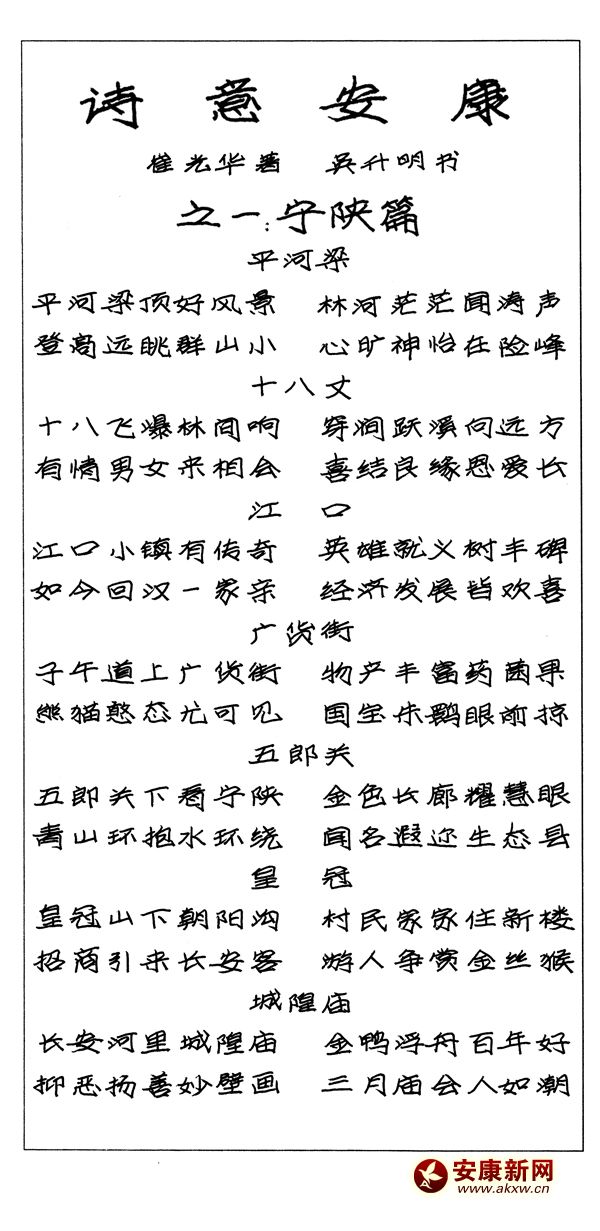 诗意安康
崔光华著 吴升明书
之一:宁陕篇
平河梁
平河梁顶好风景 林河茫茫闻涛声
登高远眺群山小 心旷神怡在险峰
十八丈
十八飞瀑林间响 穿涧跃溪向远方
有情男女来相会 喜结良缘恩爱长
江口
江口小镇有传奇 英雄就义树丰碑
如今回汉一家亲 经济发展皆欢喜
广货街
子午道上广货街 物产丰富药菌果
熊猫憨态尤可见 国宝朱鹮眼前掠
五郎关
五郎关下看宁陕 金色长廊耀慧眼
青山环抱水环绕 闻名遐迩生态县
皇冠
皇冠山下朝阳沟 村民家家住新楼
招商引来长安客 游人争赏金丝猴
城隍庙
长安河里城隍庙 金鸭浮舟百年好
抑恶扬善妙壁画 三月庙会人如潮
安康新网
www.akxw.cn